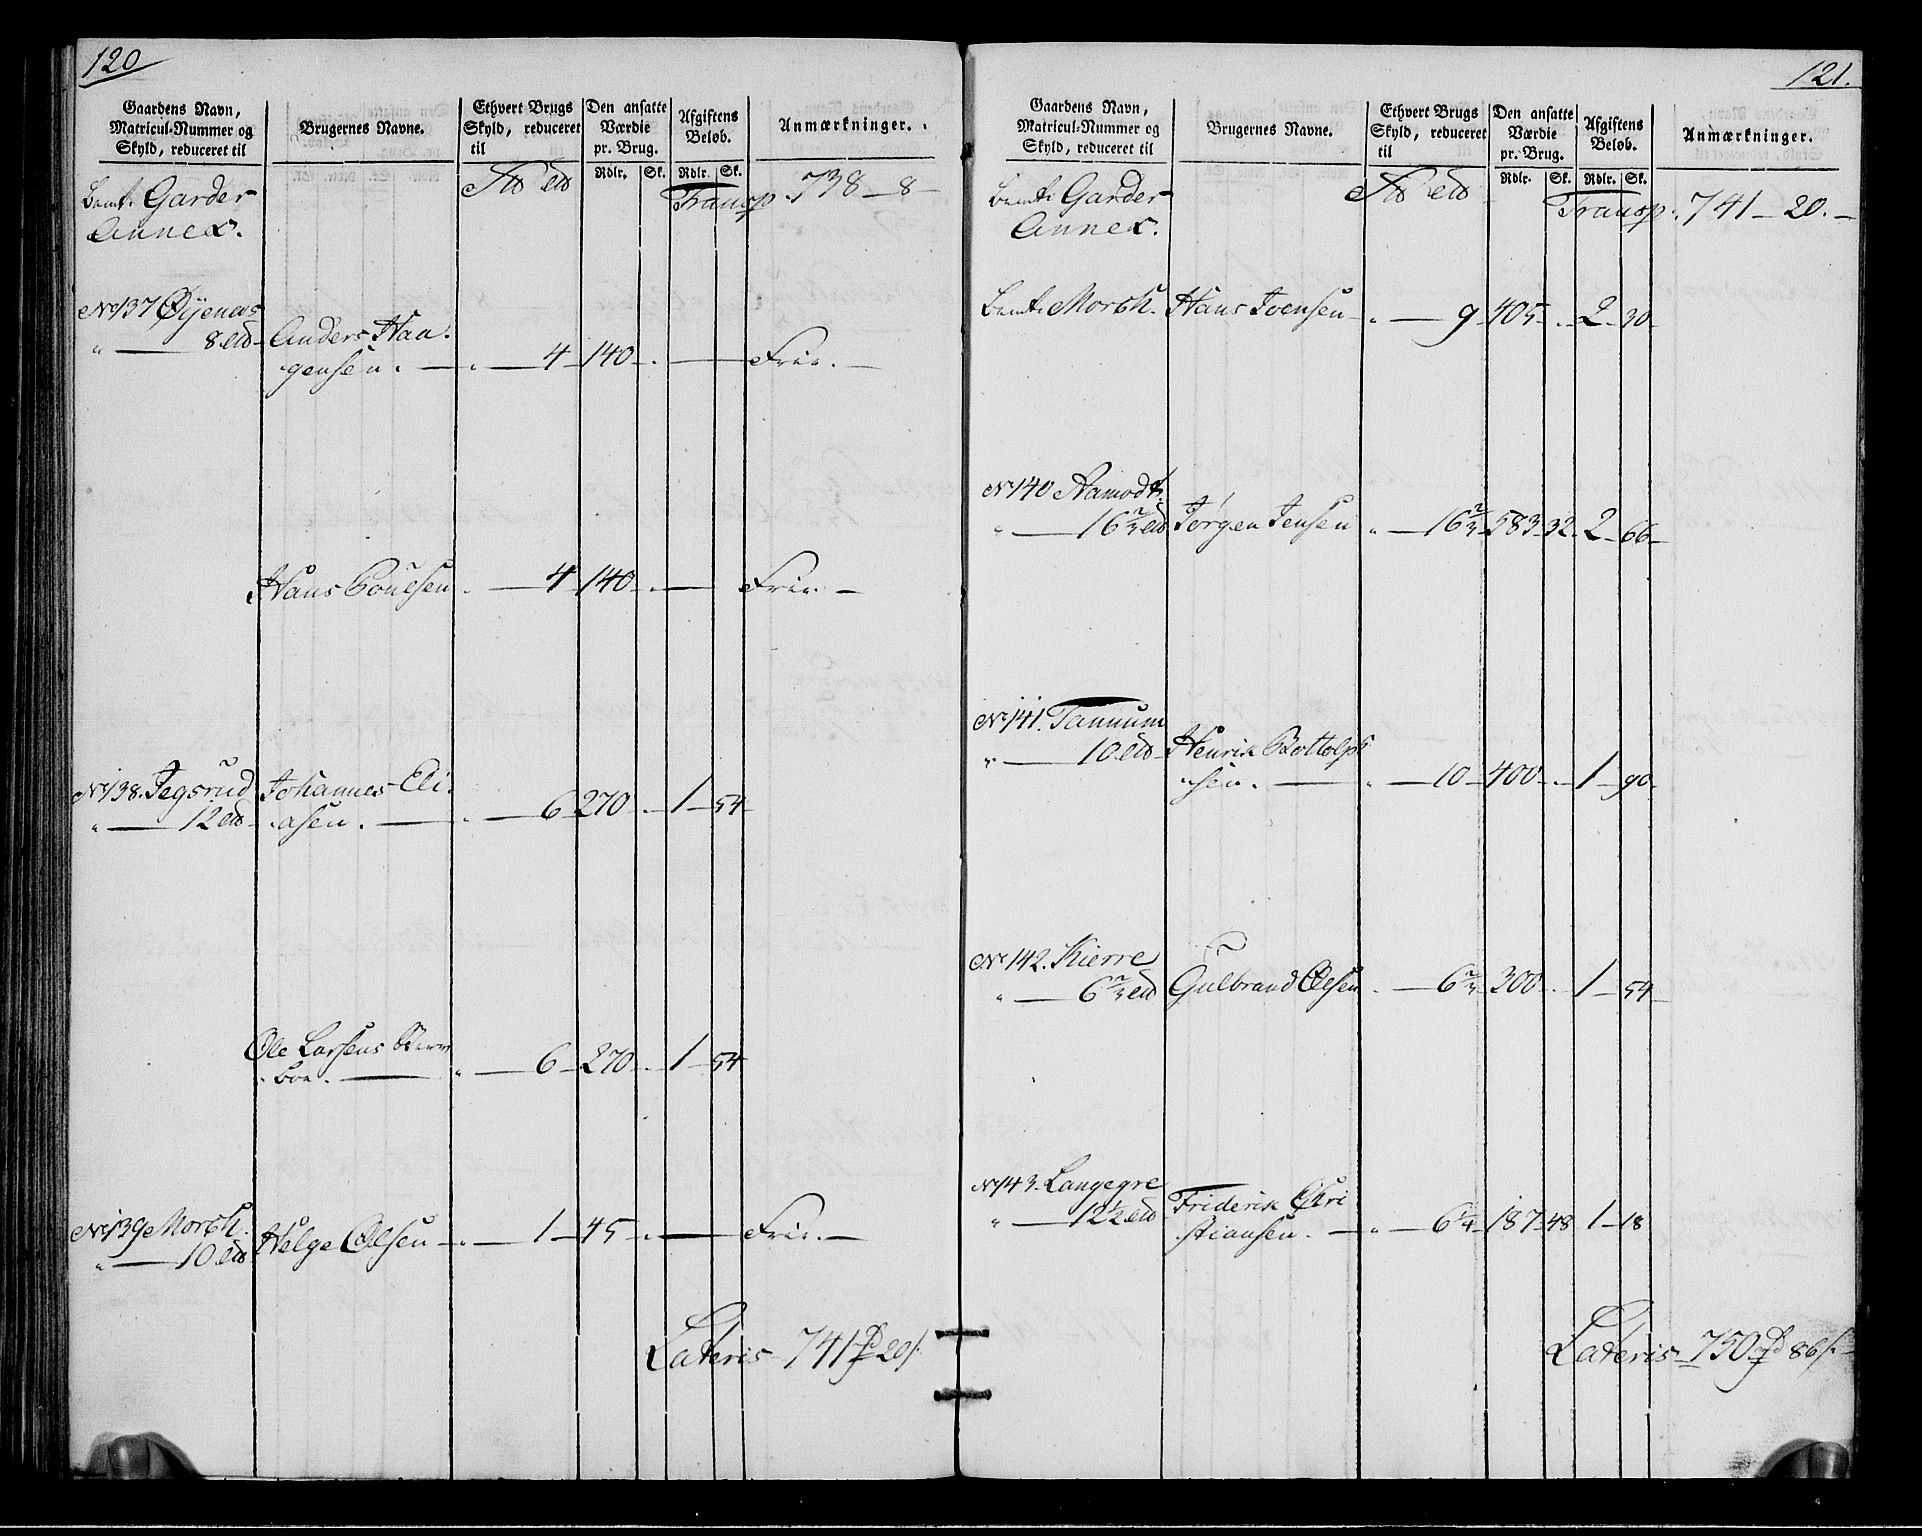 120
Gaardens Navn,
Matricul-Nummer og
Skyld, reduceret til
Brugernes Navne.
Ethvert Brugs
Skyld, reduceret
til
Den ansatte
Værdie
pr. Brug.
Afgiftens
Beløb.
Anmærkninger.
Rdlr. Sk. Rdlr. Sk.
Transp. 738 - 8 -
bemt. Garder
Annex.
No 137 Øijenes
8
Anders Haa:
gensen. - 4 - 140 - . - Frie. -
Hans Poulsen . - 4 - 140 - . - Frie. -
No 138. Jegsrud
12
Johannes Eli:
asen. - 6 - 270 - . 1 - 54 -
Ole Larsens
6 - 270 - . 1 - 54
No 139 Morth.
10
Helge Olsen - 1 - 45 - . - Frie. -
Lateris - 741 20
121.
Gaardens Navn,
Matricul-Nummer og
Skyld, reduceret til
Brugernes Navne.
Ethvert Brugs
Skyld, reduceret
til
Den ansatte
Værdie
pr. Brug.
Afgiftens
Beløb.
Anmærkninger.
Rdlr. Sk. Rdlr. Sk.
Transp. 741 - 20. -
bemt. Garder
Annex.
bemt. Morth. Hans Ivensen - 9 - 405 - . 2 - 30 -
No 140 Aamodt.
16 2/3 Jørgen Jensen - 16 2/3 - 583 - 32 - 2 - 66 -
No 141. Tannum
10
Henrik Bottolph
sen. - 10 - 400 - . - 1 - 90 -
No 142. Kierre
6 2/3 Gulbrand Olsen - 6 2/3 - 300 - . 1 - 54 -
No 143. Langegre
12 1/2
Friderik Chri
stiansen. - 6 1/4 - 187 - 48 1 - 18
Lateris - 750 86